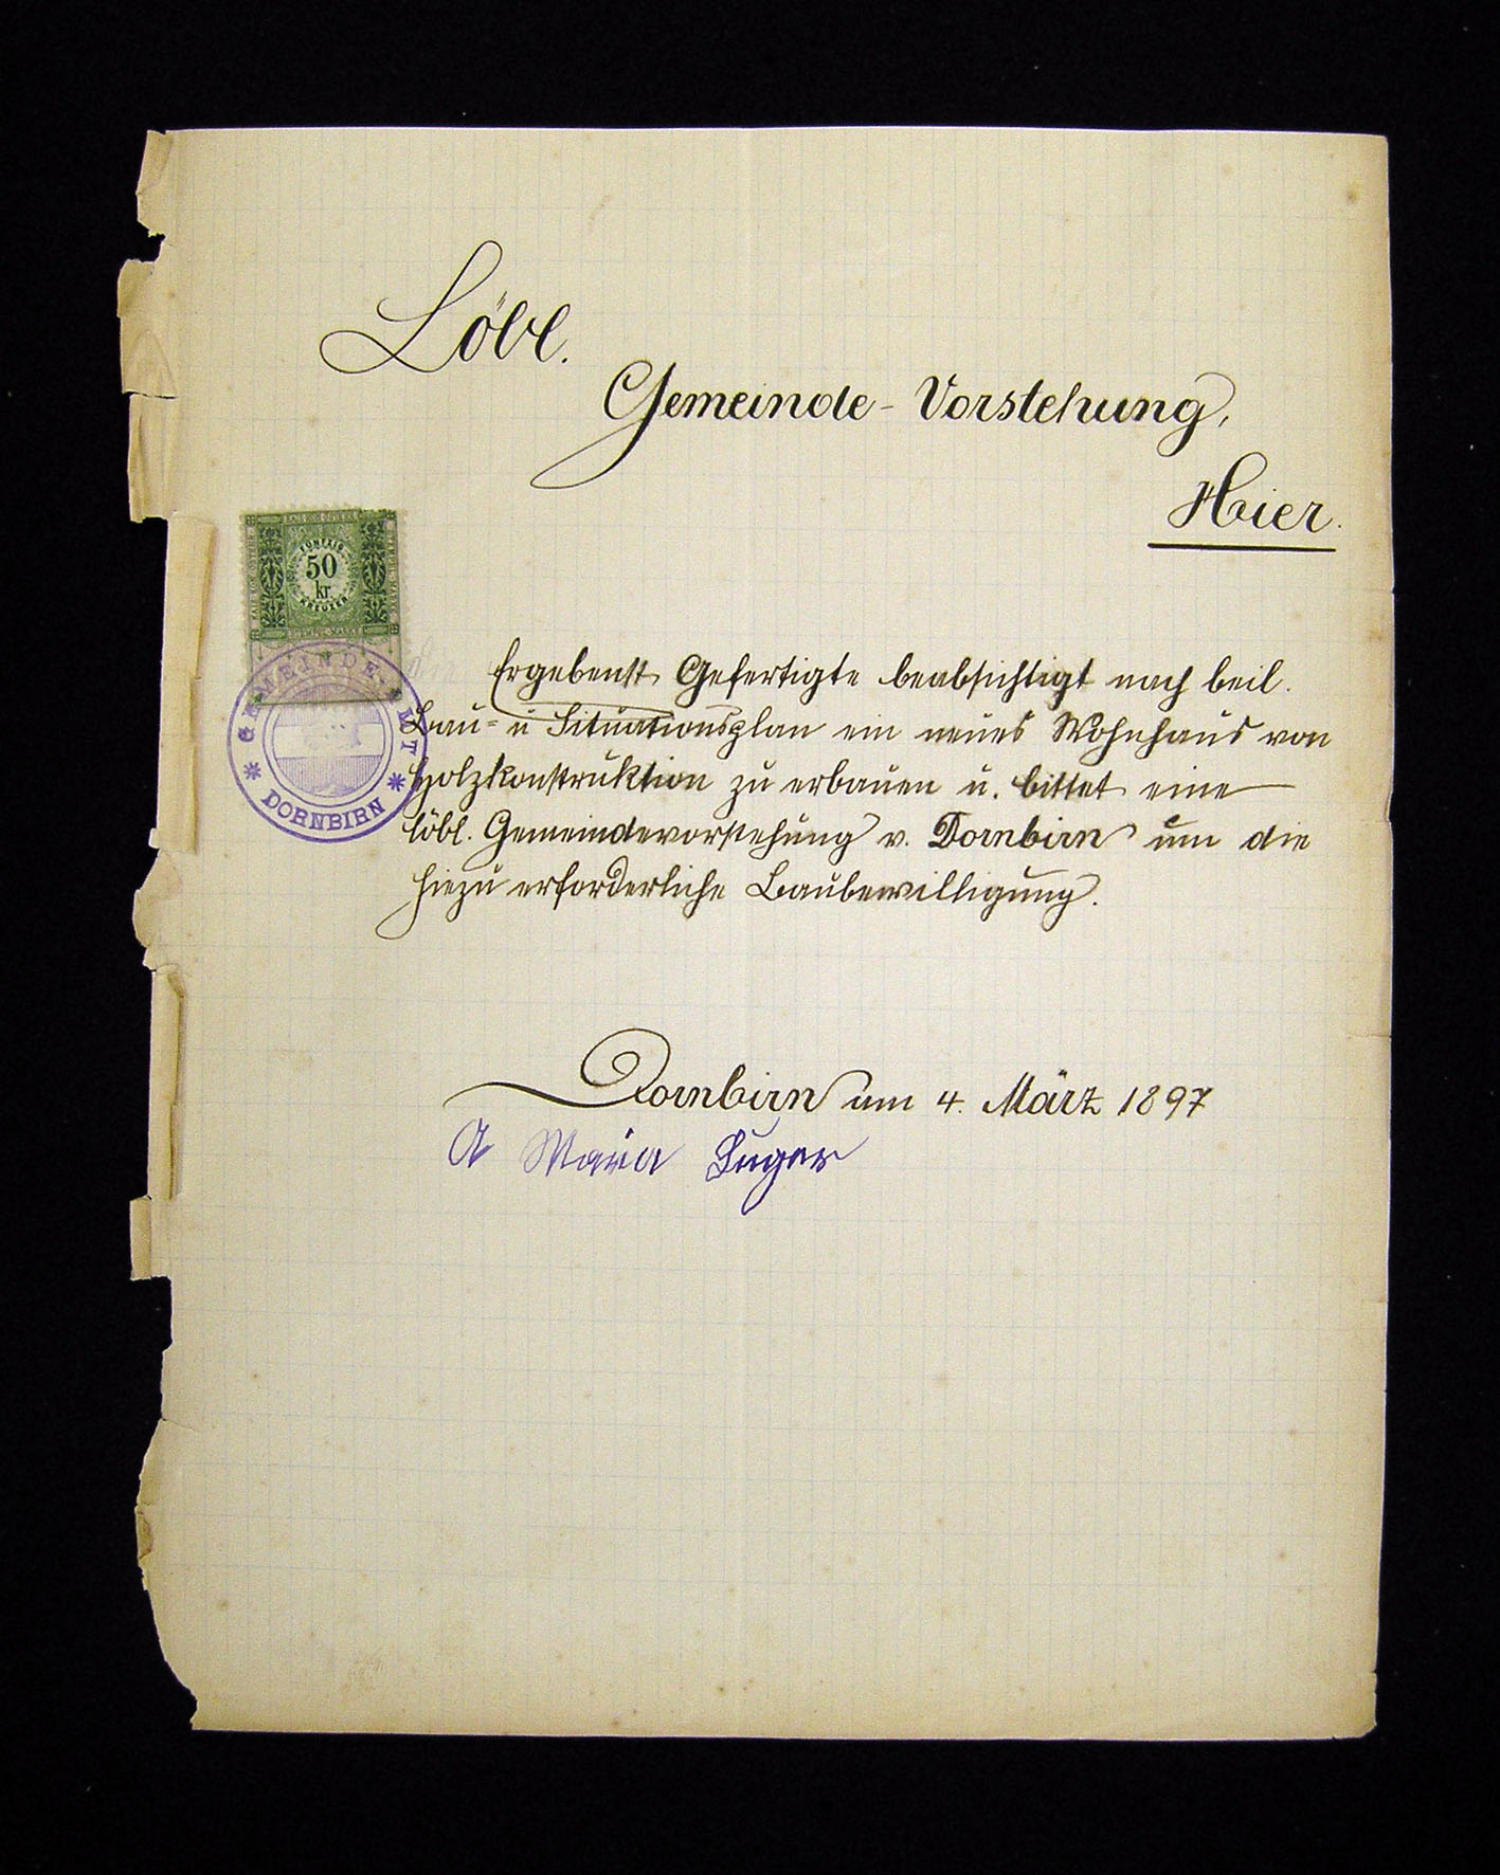 Löbl.
Gemeinde-Vorstehung,
Hier.
FÜNFZIG
50
kr.
KREUZER
GEMEINDE-AMT
* DORNBIRN *
Ergebenst Gefertigte beabsichtigt nach beil.
Bau- u Situationsplan ein neues Wohnhaus von
Holzkonstruktion zu erbauen u. bittet eine
löbl. Gemeindevorstehung v. Dornbirn um die
hiezu erforderliche Baubewilligung.
Dornbirn am 4. März 1897
A Maria Luger